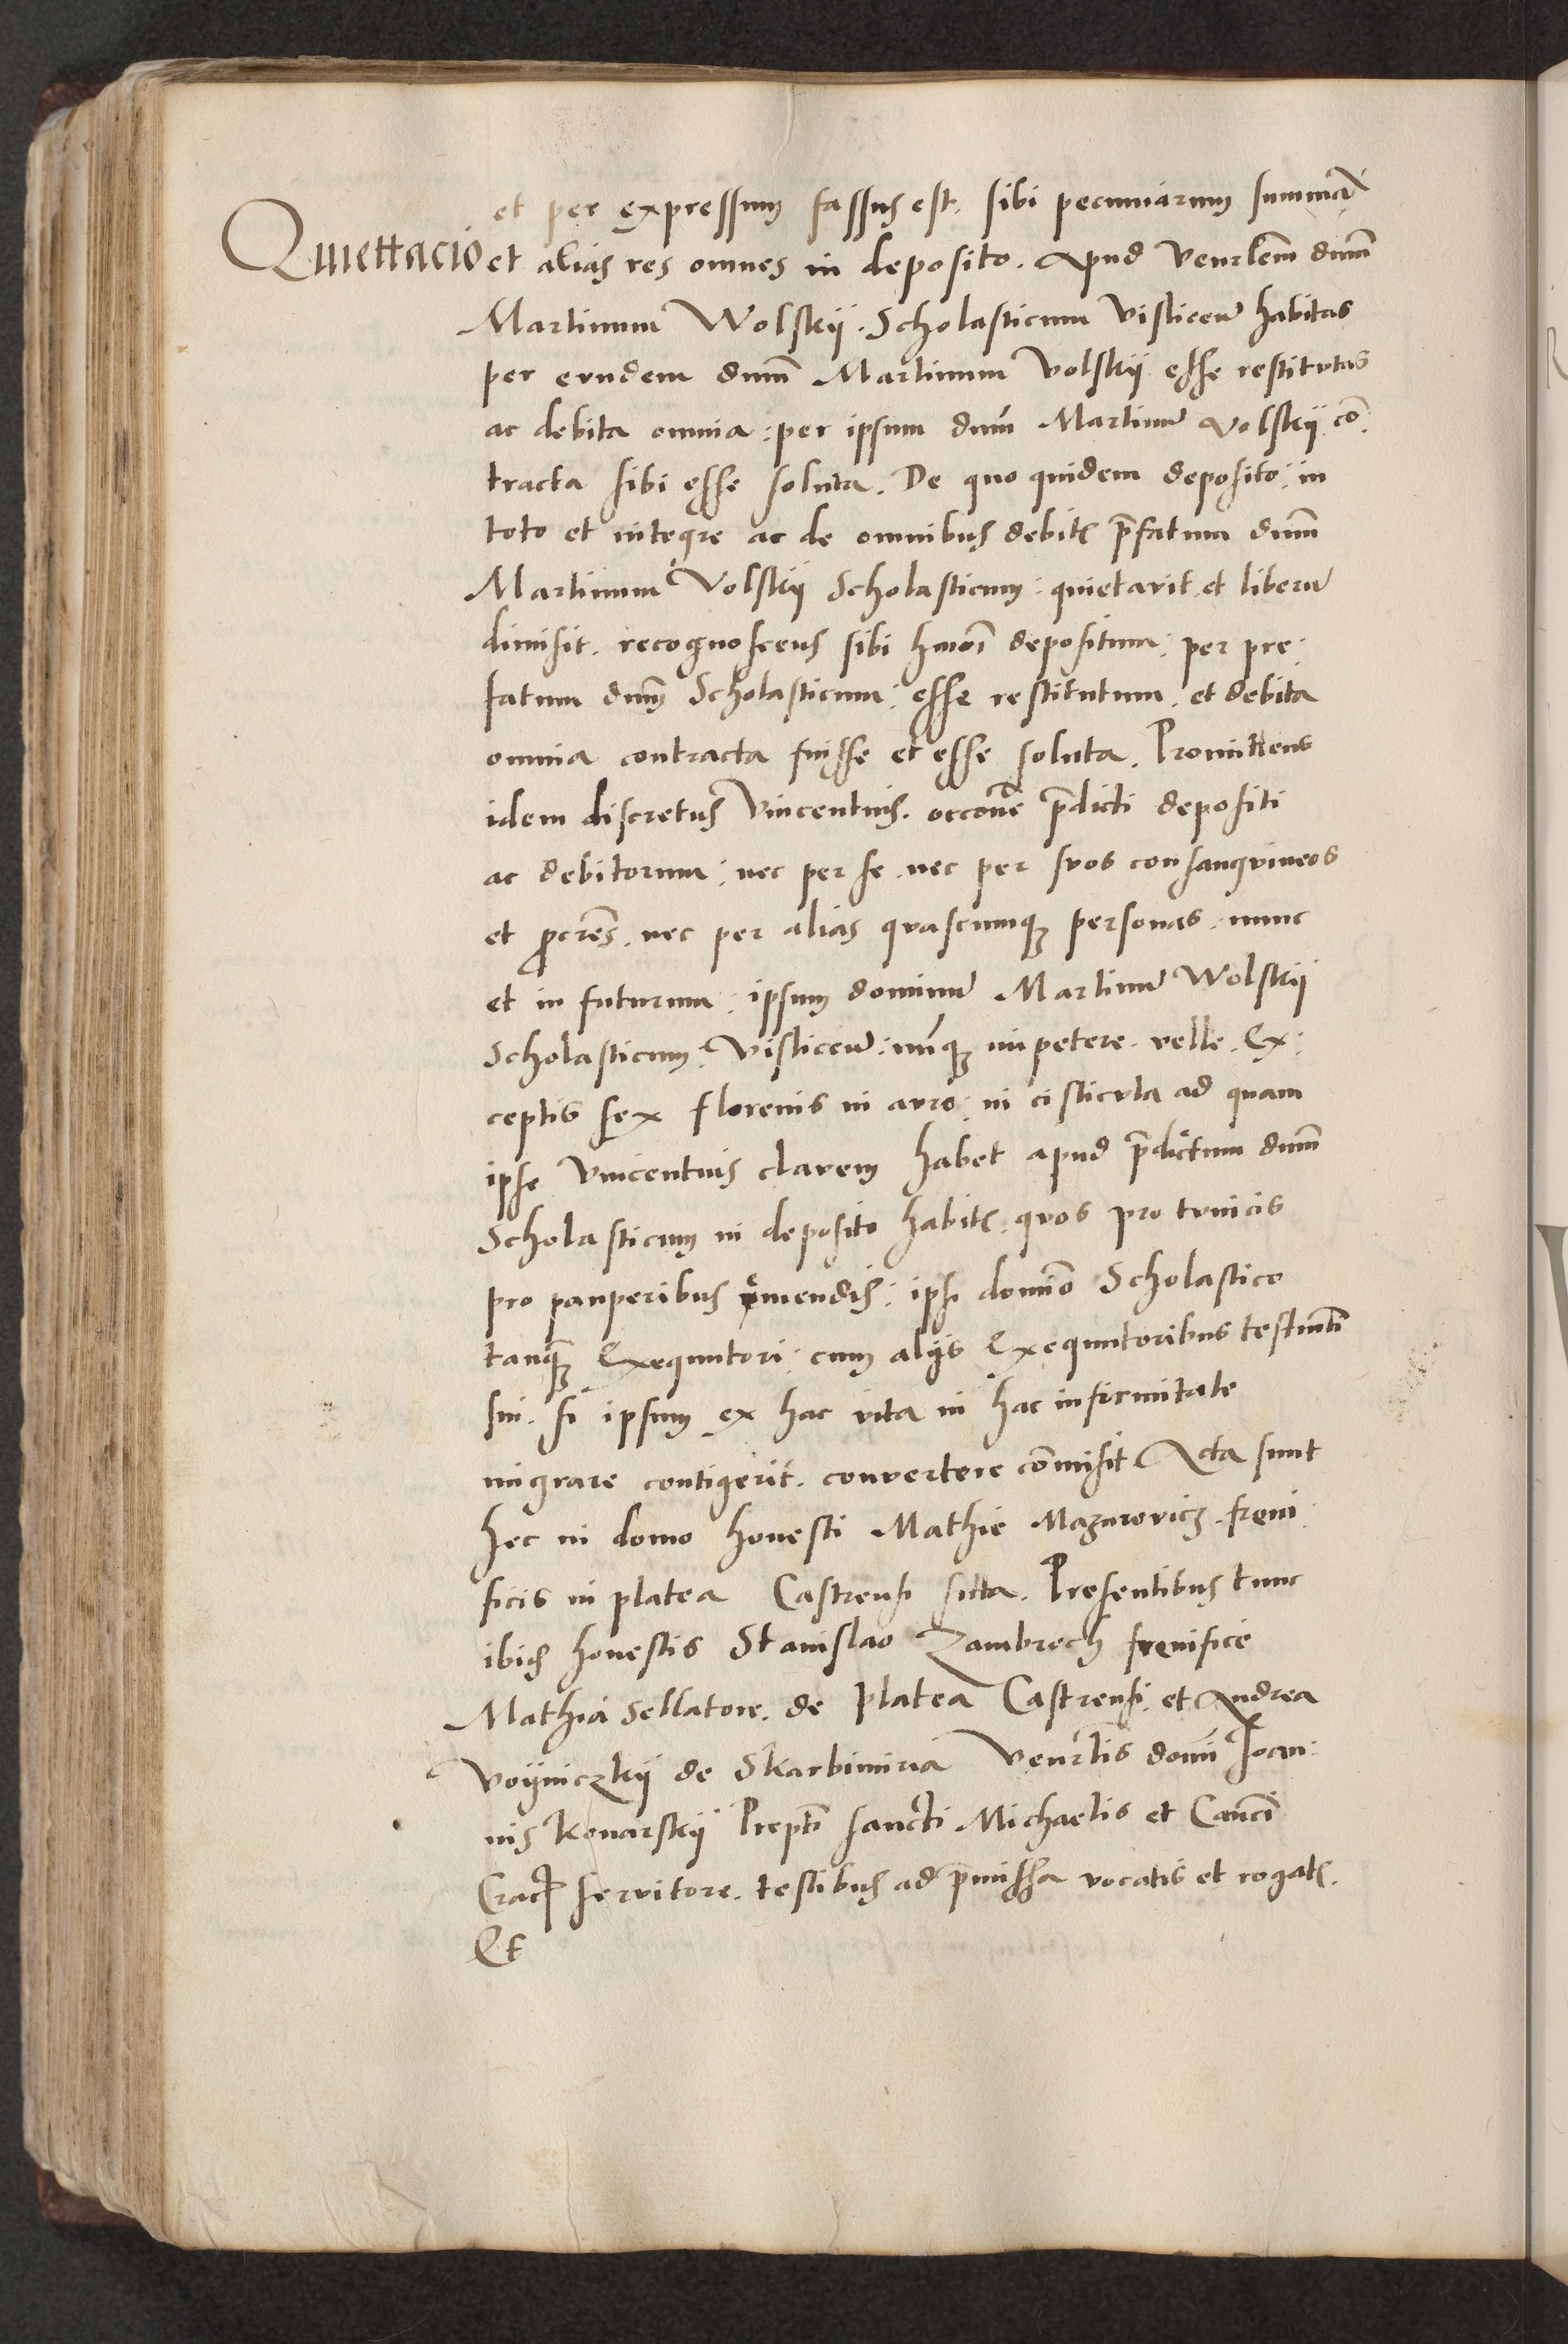 et per expressum fassus est. sibi pecuniarum summā
Quiettacio
et alias res omnes in deposito. Apud Venerlem dnm̄
Martinum Wolskij. Scholasticum Vislicen̄ habitas
per eundem dnm̄ Martinum Volskij esse restitutas
ac debita omnia: per ipsum dnm̄ Martinū Volskij cō.
tracta sibi esse soluta. De quo quidem deposito: in
toto et integre ac de omnibus debitꝭ p̄fatum dnm̄
Martinum Volskij Scholasticum: quietavit. et liberū
dimisit. recognoscens sibi hmōi depositum: per pre:
fatum dnm̄ Scholasticum: esse restitutum. et debita
omnia contracta fuisse et esse soluta. Promittens
idem discretus Vincentius. occōne p̄dicti depositi
ac debitorum: nec per se. nec per suos consanguineos
et ꝓcrēs. nec per alias quascumqꝫ personas. nunc
et in futurum: ipsum dominū Martinū Wolskij
Scholasticum: Vislicen̄: nūnqꝫ impetere. velle. Ex:
ceptis sex florenis in auro: in cisticula ad quam
ipse Vincentius clavem habet apud p̄dictum dnm̄
Scholasticum in deposito habitꝭ. quos pro tunicis
pro pauperibus emendis: ipsi domīo Scholastico
tanqꝫ Exequutori: cum alijs Exequutoribus testmti
sui. si ipsum ex hac vita in hac infirmitate
migrare contigerit. convertere cōmisit Acta sunt
hec in domo honesti Mathie Mazurovicz. freni
ficis in platea Castrensi sitta. Presentibus tunc
ibid honestis Stanislao Zambrech frenifice
Mathia Sellatore. de platea Castrensi. et Andrea
Voijniczkij de Skarbimiria Venerlis domī Joan:
nis Konarskij Prepti sancti Michaelis et Canci
Crac̄ servitore. testibus ad p̄missa vocatis et rogatꝭ.
Et